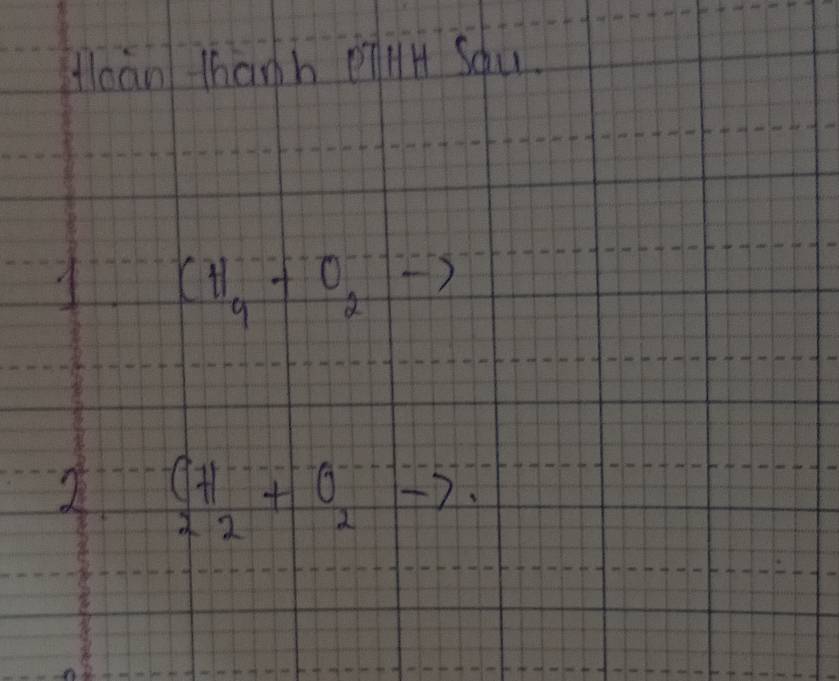 Hoàn thành PTHH Sau.
1. CH₄ + O₂ ->
2. C₂H₂ + O₂ ->.